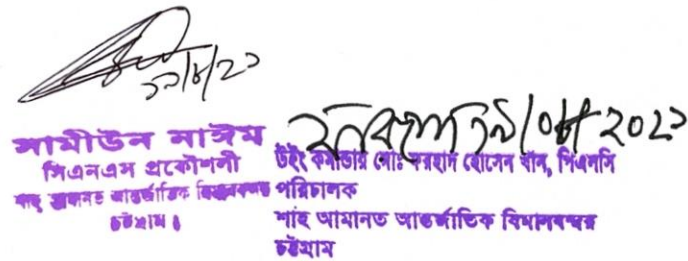 ১৯/৮/২১
সামীউন নাঈম
সিএনএস প্রকৌশলী
শাহ আমানত আন্তর্জাতিক বিমানবন্দর
চট্টগ্রাম।
২০২১
উইং কমান্ডার মোঃ ফরহাদ হোসেন খাঁন, পিএসসি
পরিচালক
শাহ আমানত আন্তর্জাতিক বিমানবন্দর
চট্টগ্রাম